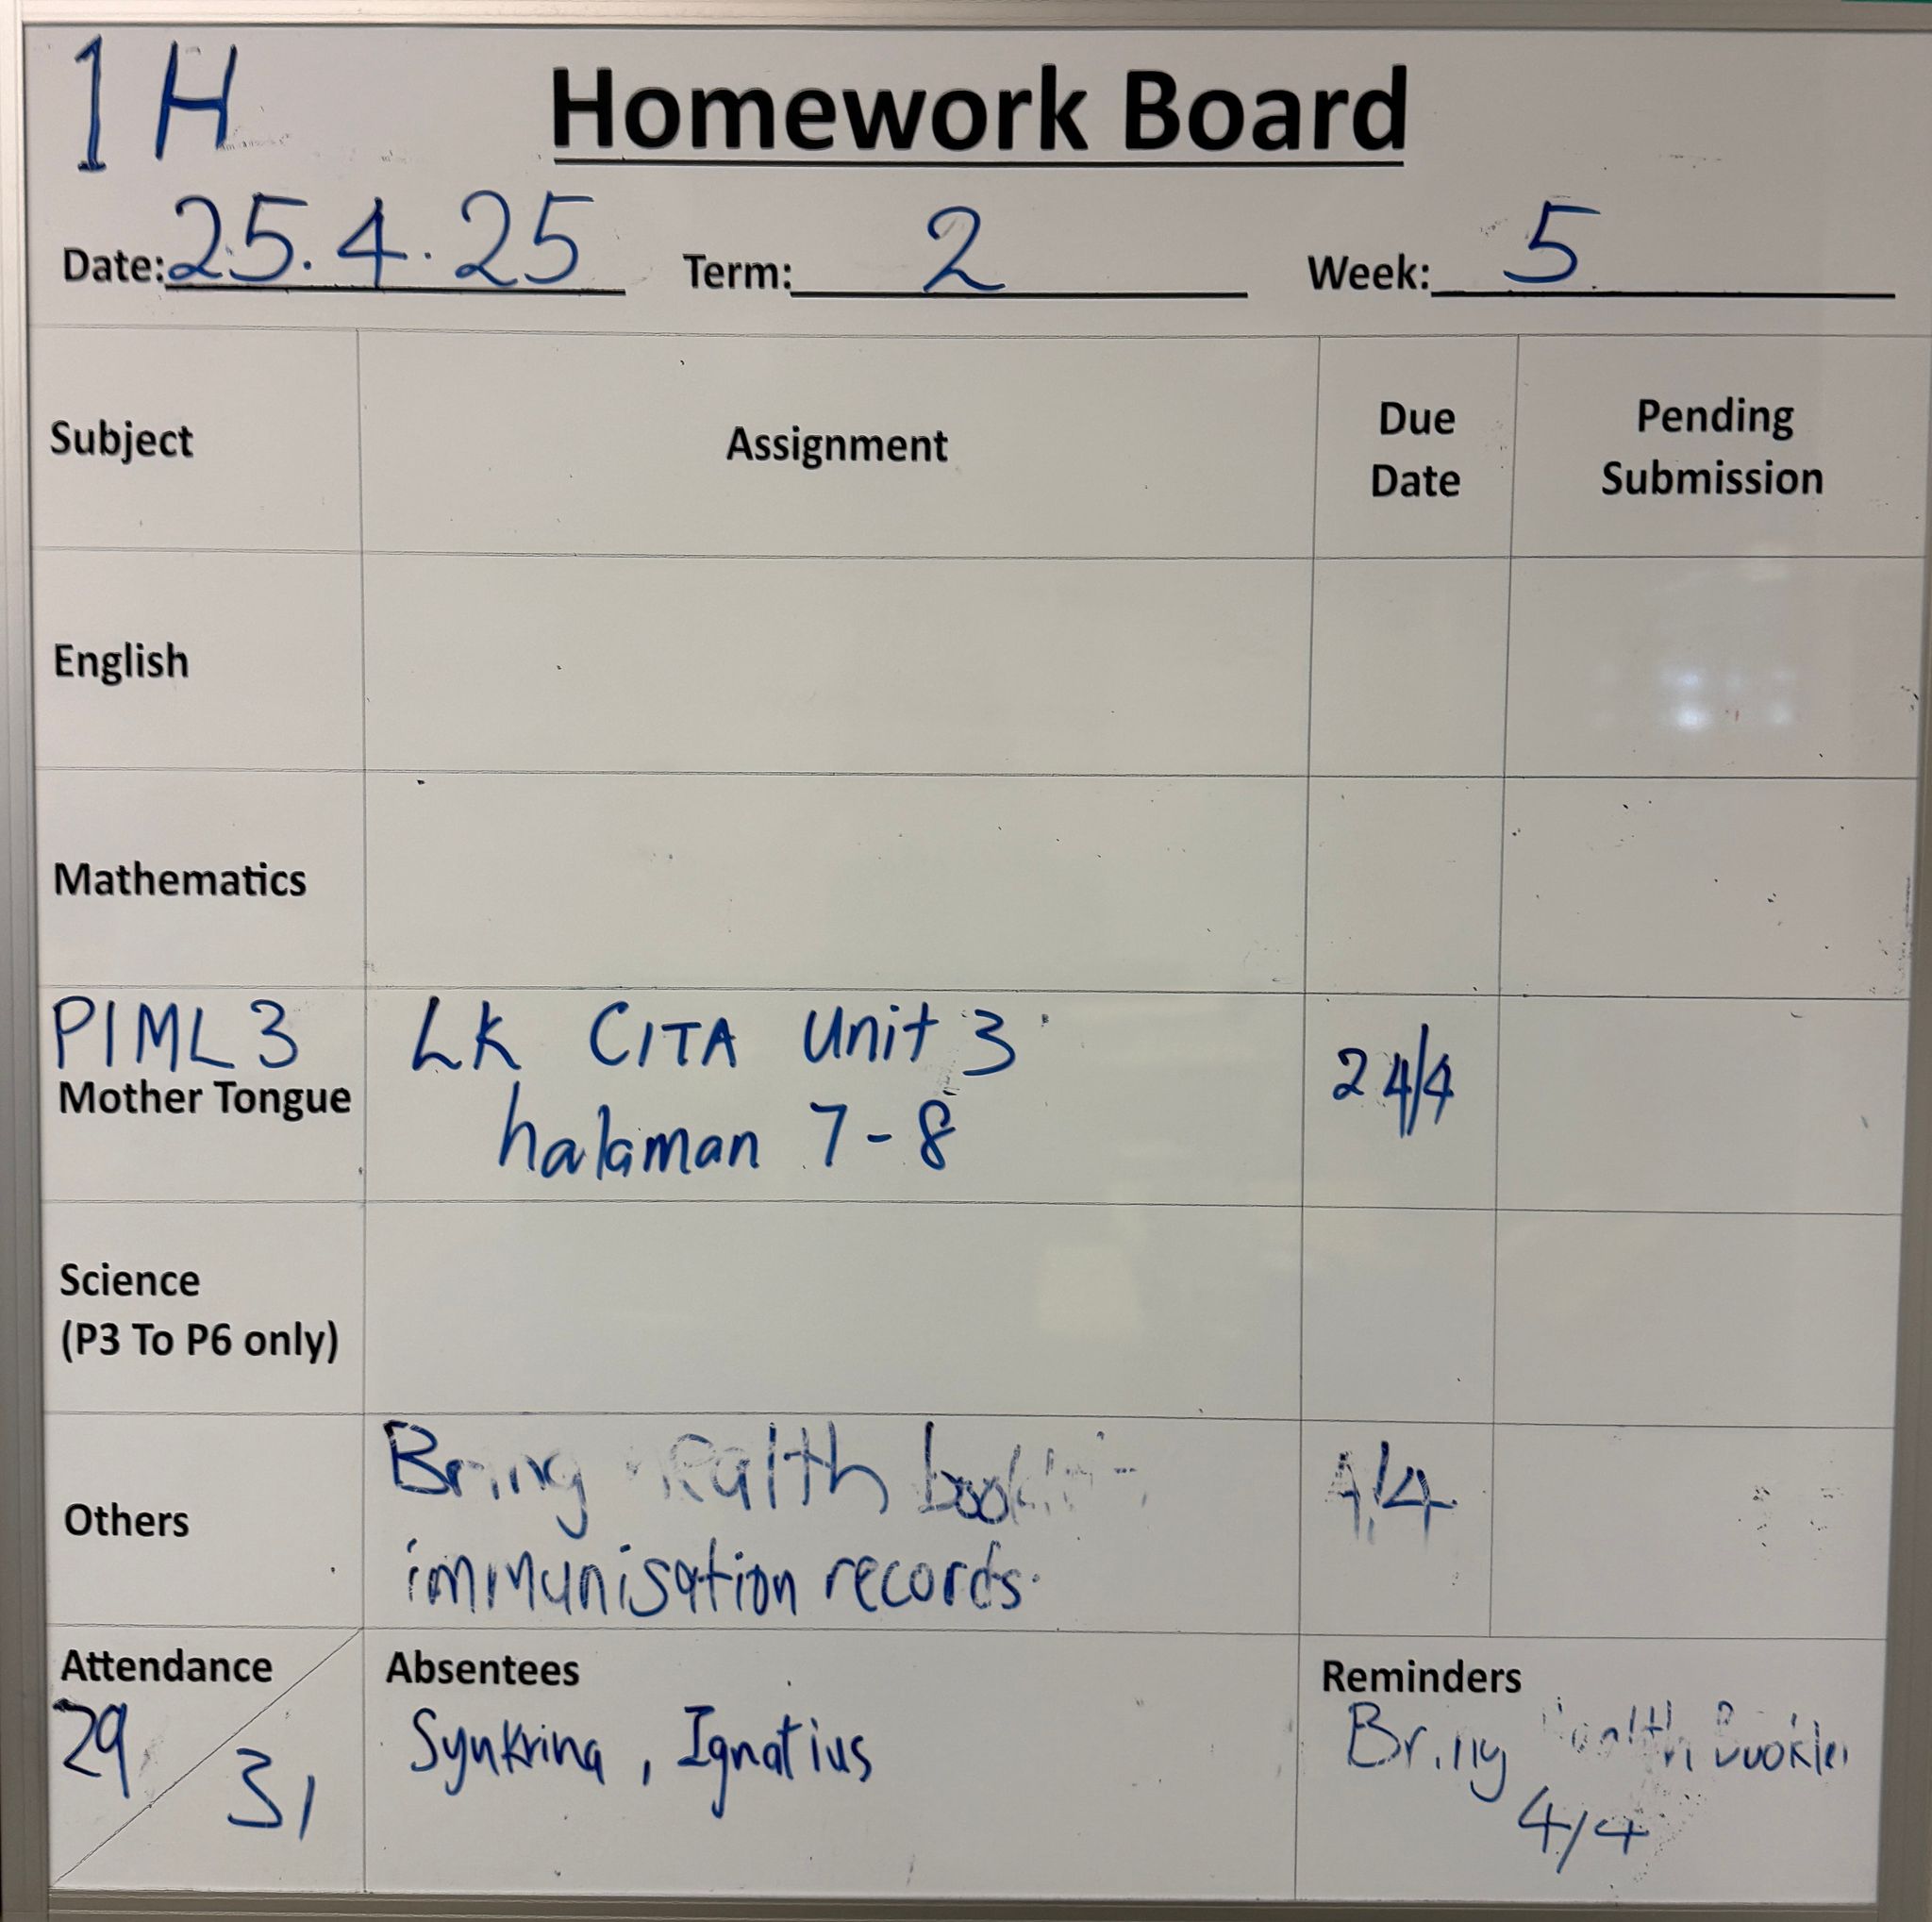 1H
Homework Board
Date: 25.4.25 Term: 2 Week: 5
Subject Assignment Due Date Pending Submission
English
Mathematics
PIML 3 LK CITA Unit 3
Mother Tongue halaman 7-8 24/4
Science
(P3 To P6 only)
Bring health 4/4
Others immunisation records.
Attendance Absentees Reminders
29 31 Synkrina, Ignatius Bring Health
4/4